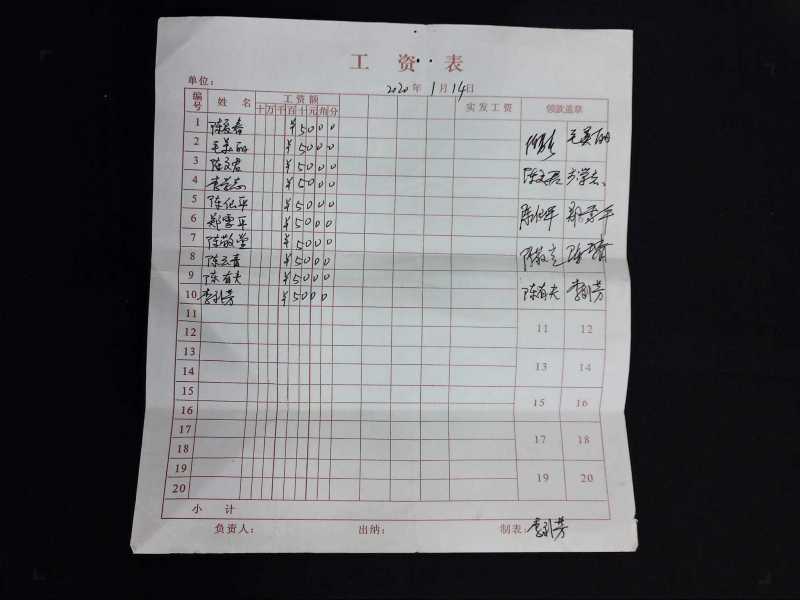 工资表
单位：
2020年1月14日
编号 姓名 工资额 实发工资 领款盖章
十万千百十元角分
1 陈爱春 ¥5000
2 毛美丽 ¥5000 毛美丽
3 陈文君 ¥5000
4 李学志 ¥5000 陈文君
5 陈仕平 ¥5000
6 郑雪平 ¥5000 陈仕平
7 陈敬堂 ¥5000
8 陈云香 ¥5000
9 陈有夫 ¥5000
10 李引芳 ¥5000 陈有夫 李引芳
11 11 12
12
13 13 14
14
15 15 16
16
17 17 18
18
19 19 20
20
小计
负责人： 出纳： 制表：李引芳